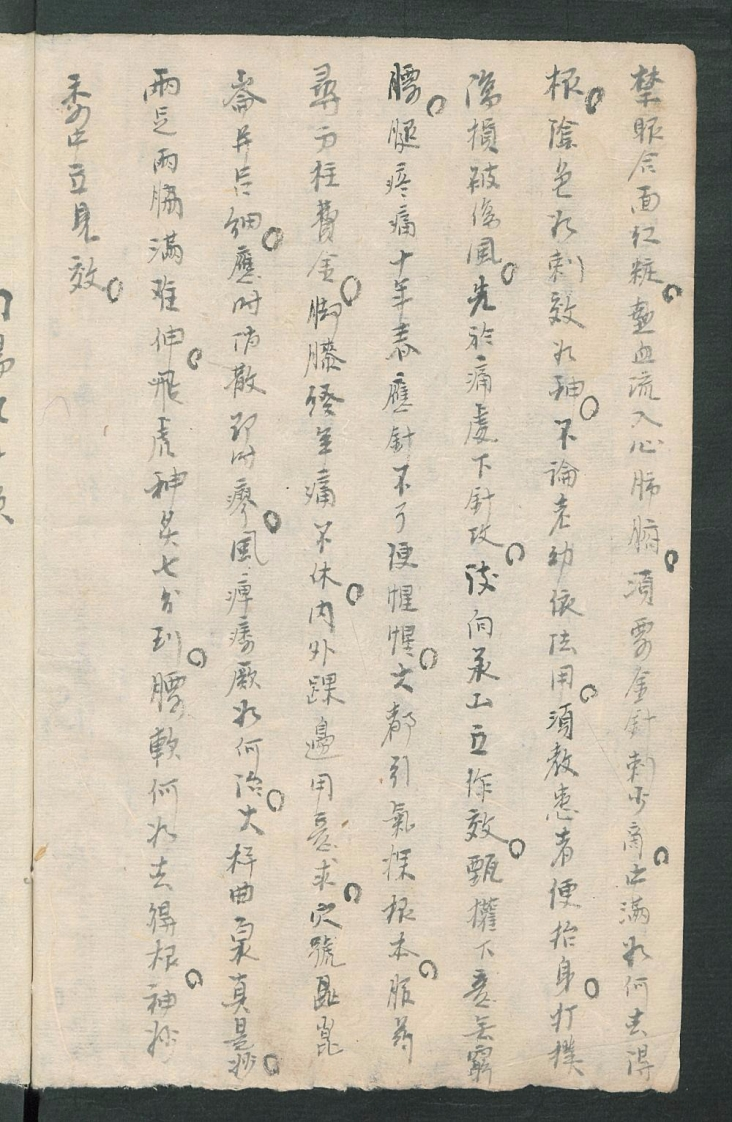 禁眼合面紅粧。盍血流入心肺腑。須要金針刺少商。中滿如何去得
根。陰邑如刺效如神。不論老幼依法用。須教患者便抬身。打撲
傷損破傷風。先於痛處下針攻。後向承山立作效。甄權下意無窮
腰。腿疼痛十年春。應針不了便惺惺。大都引氣探根本。服葯
尋方枉費金。脚膝經年痛不休。內外踝邊用意求。穴號崑
崙并呂細。應時消散即時瘳。風痺痿厥如何治。大杼曲泉真是妙。
兩足兩脇滿难伸。飛虎神灸七分到。腰軟何如去得根。神妙
委中立見效。